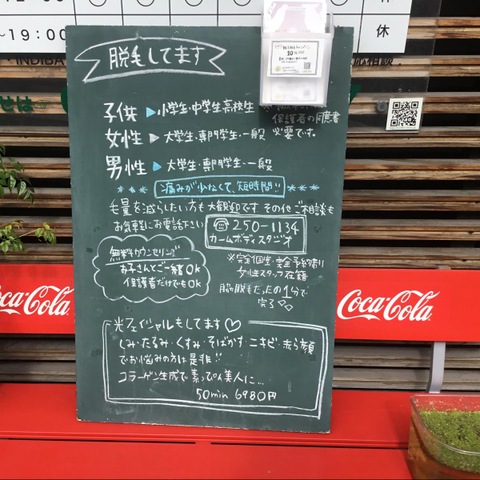 休
~19:00
INDIBA
脱毛してます
子供▶小学生・中学生高校生
保護者の同意書
必要です。
女性▶大学生・専門学生・一般
男性▶大学生・専門学生・一般
痛みが少なくて、短時間!!
毛量を減らしたい方も大歓迎です その他ご相談も
お気軽にお電話下さい
☎250-1134
カームボディスタジオ
無料カウンセリング
お子さんとご一緒OK
保護者だけでもOK
※完全個室・完全予約制
女性スタッフ在籍
脇脱毛たったの1分で
完了♡♡
光フェイシャルもしてます♡
しみ・たるみ・くすみ・そばかす・ニキビ・赤ら顔
でお悩みの方は是非!!
コラーゲン生成で素っぴん美人に…
50min 6980円
Coca-Cola
Coca-Cola